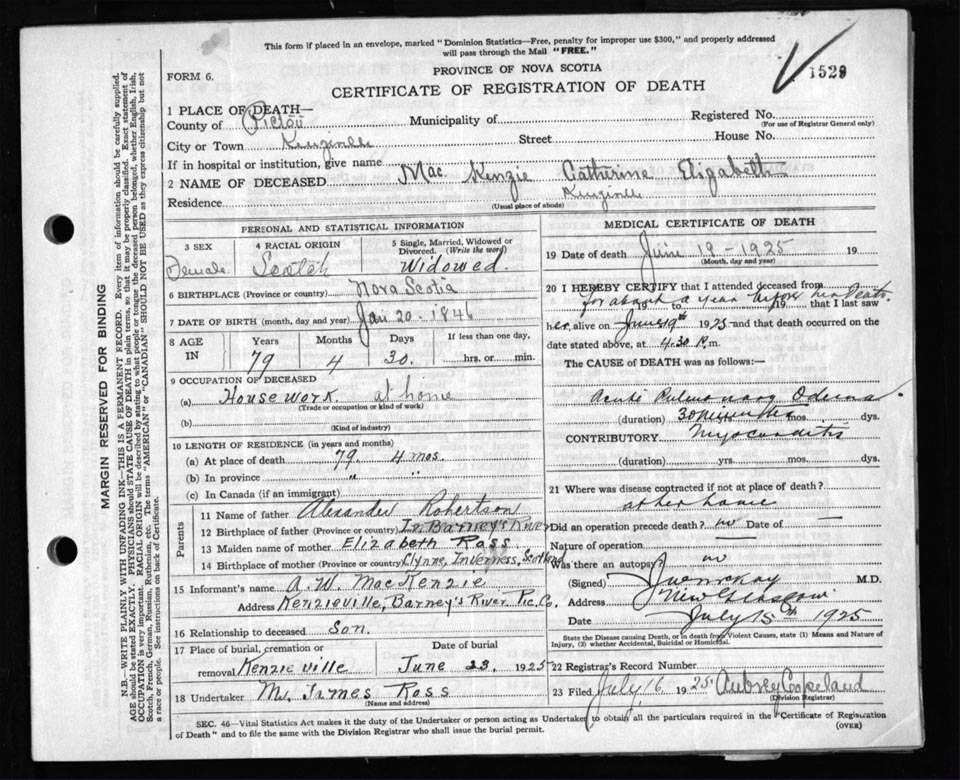 This form if placed in an envelope, marked "Dominion Statistics—Free, penalty for improper use $300," and properly addressed
will pass through the Mail "FREE."
1529
PROVINCE OF NOVA SCOTIA
FORM 6.
CERTIFICATE OF REGISTRATION OF DEATH
1 PLACE OF DEATH—
County of Pictou Municipality of Registered No.
(For use of Registrar General only)
City or Town Street House No.
If in hospital or institution, give name
2 NAME OF DECEASED Mac Kenzie Catherine Elizabeth
Residence
(Usual place of abode)
PERSONAL AND STATISTICAL INFORMATION
3 SEX 4 RACIAL ORIGIN 5 Single, Married, Widowed or Divorced. (Write the word)
Female Scotch Widowed.
6 BIRTHPLACE (Province or country) Nova Scotia
7 DATE OF BIRTH (month, day and year) Jan 20 - 1846
8 AGE IN Years Months Days If less than one day,
79 4 30. hrs. or min.
9 OCCUPATION OF DECEASED
(a) House work. at home
(Trade or occupation or kind of work)
(b)
(Kind of industry)
10 LENGTH OF RESIDENCE (in years and months)
(a) At place of death 79. 4 mos.
(b) In province "
(c) In Canada (if an immigrant)
Parents
11 Name of father Alexander Robertson
12 Birthplace of father (Province or country) In Barney's River
13 Maiden name of mother Elizabeth Ross
14 Birthplace of mother (Province or country) Clynne, Inverness, Scotland
15 Informant's name A. W. MacKenzie
Address Kenzieville, Barney's River Pic. Co.
16 Relationship to deceased Son.
17 Place of burial, cremation or Date of burial
removal Kenzieville June 23, 1925
18 Undertaker James Ross
(Name and address)
MEDICAL CERTIFICATE OF DEATH
19 Date of death June 19 - 1925 19
(Month, day and year)
20 I HEREBY CERTIFY that I attended deceased from
for about a year before her death
19 to 19 that I last saw
her alive on June 19th 1925 and that death occurred on
date stated above, at 4.30 P.m.
The CAUSE of DEATH was as follows:—
Acute Pulmonary Odema
(duration) 30 minutes mos. dys.
CONTRIBUTORY Myocarditis
(duration) yrs. mos. dys.
21 Where was disease contracted if not at place of death?
at her home
Did an operation precede death? no Date of —
Nature of operation —
Was there an autopsy? no
(Signed) M.D.
New Glasgow
Date July 15th 1925
State the Disease causing Death, or in death from Violent Causes, state (1) Means and Nature of
Injury, (2) whether Accidental, Suicidal or Homicidal.
22 Registrar's Record Number
23 Filed July 16 1925 Aubrey Copeland
(Division Registrar)
SEC. 46—Vital Statistics Act makes it the duty of the Undertaker or person acting as Undertaker to obtain all the particulars required in the "Certificate of Registration
of Death" and to file the same with the Division Registrar who shall issue the burial permit.
(OVER)
MARGIN RESERVED FOR BINDING
N.B.—WRITE PLAINLY WITH UNFADING INK—THIS IS A PERMANENT RECORD. Every item of information should be carefully supplied.
AGE should be stated EXACTLY. PHYSICIANS should STATE CAUSE OF DEATH in plain terms, so that it may be properly classified. Exact statement of
OCCUPATION is very important. RACIAL ORIGIN will be described by stating to what people or tongue the deceased person belonged, whether English, Irish,
Scotch, French, German, Russian, Ruthenian, etc. The terms "AMERICAN" or "CANADIAN" SHOULD NOT BE USED as they express citizenship but not
a race or people. See instructions on back of Certificate.